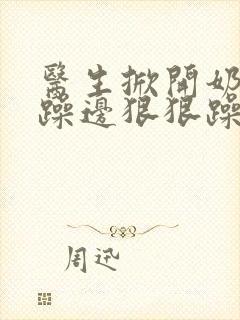 醫生掀開奶
躁邊狠狠躁
周迅